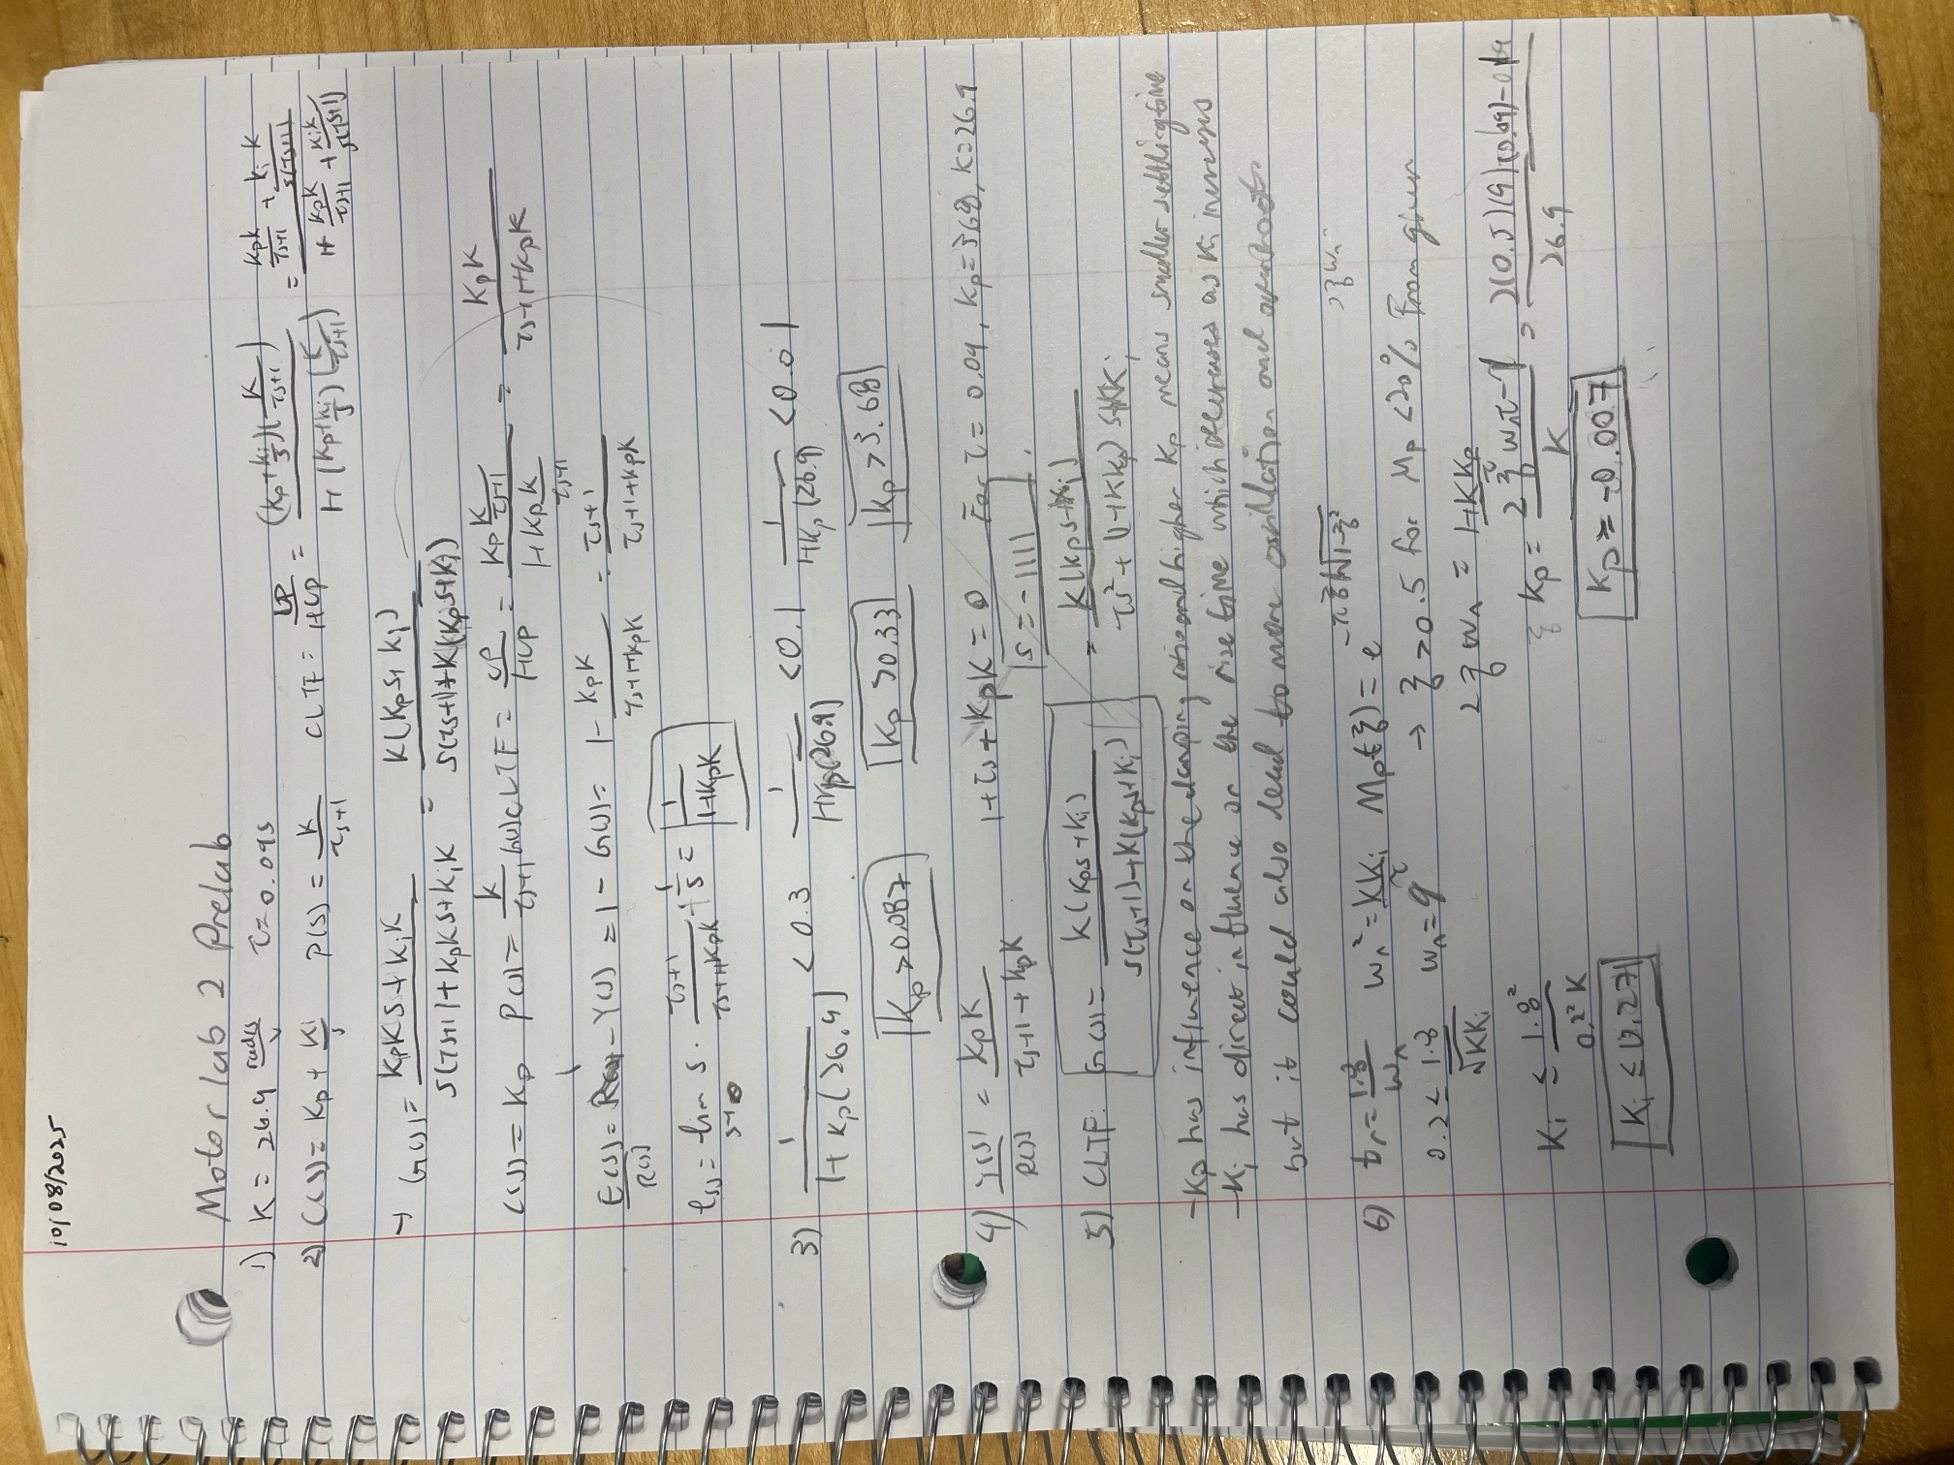 10/08/2025
Motor lab 2 Prelab
1) K = 26.9 rad/s τ = 0.04s
2) C(s) = Kp + Ki/s P(s) = K/(τs+1) CLTF = CP/(1+CP) = (Kp+Ki/s)(K/(τs+1)) / (1+(Kp+Ki/s)(K/(τs+1))) = (KpK/(τs+1) + KiK/(s(τs+1))) / (1+KpK/(τs+1) + KiK/(s(τs+1)))
→ G(s) = (KpKs+KiK) / (s(τs+1)+KpKs+KiK) = K(Kps+Ki) / (s(τs+1)+K(Kps+Ki))
C(s) = Kp P(s) = K/(τs+1) G(s) CLTF = CP/(1+CP) = (Kp K/(τs+1)) / (1+Kp K/(τs+1)) = KpK/(τs+1+KpK)
E(s)/R(s) = 1 - Y(s) = 1 - G(s) = 1 - KpK/(τs+1+KpK) = (τs+1)/(τs+1+KpK)
ess = lim s→0 s · (τs+1)/(τs+1+KpK) · 1/s = 1/(1+KpK)
3) 1/(1+Kp(26.9)) < 0.3 1/(1+Kp(26.9)) < 0.1 1/(1+Kp(26.9)) < 0.01
Kp > 0.087 Kp > 0.33 Kp > 3.68
4) Y(s)/R(s) = KpK/(τs+1+KpK) 1+τs+KpK = 0 For τ = 0.04, Kp = 3.68, K = 26.9
s = -1111
5) CLTF: G(s) = K(Kps+Ki) / (s(τs+1)+K(Kps+Ki)) = K(Kps+Ki) / (τs²+(1+KKp)s+KKi
→ Kp has influence on the damping ratio and higher Kp means smaller settling time
→ Ki has direct influence on the rise time which decreases as Ki increases
but it could also lead to more oscillation and overshoot
6) tr = 1.8/ωn ωn² = KKi/τ Mp(ξ) = e^(-πξ/√(1-ξ²))
0.2 ≤ 1.8/√KKi ωn = 9 → ξ > 0.5 for Mp < 20% From given
2ξωn = (1+KKp)/τ
Ki ≤ 1.8²/(0.2² K) Kp = (2ξωnτ-1)/K = (2(0.5)(9)(0.04)-1)/26.9
Ki ≤ 0.271 Kp ≥ -0.007